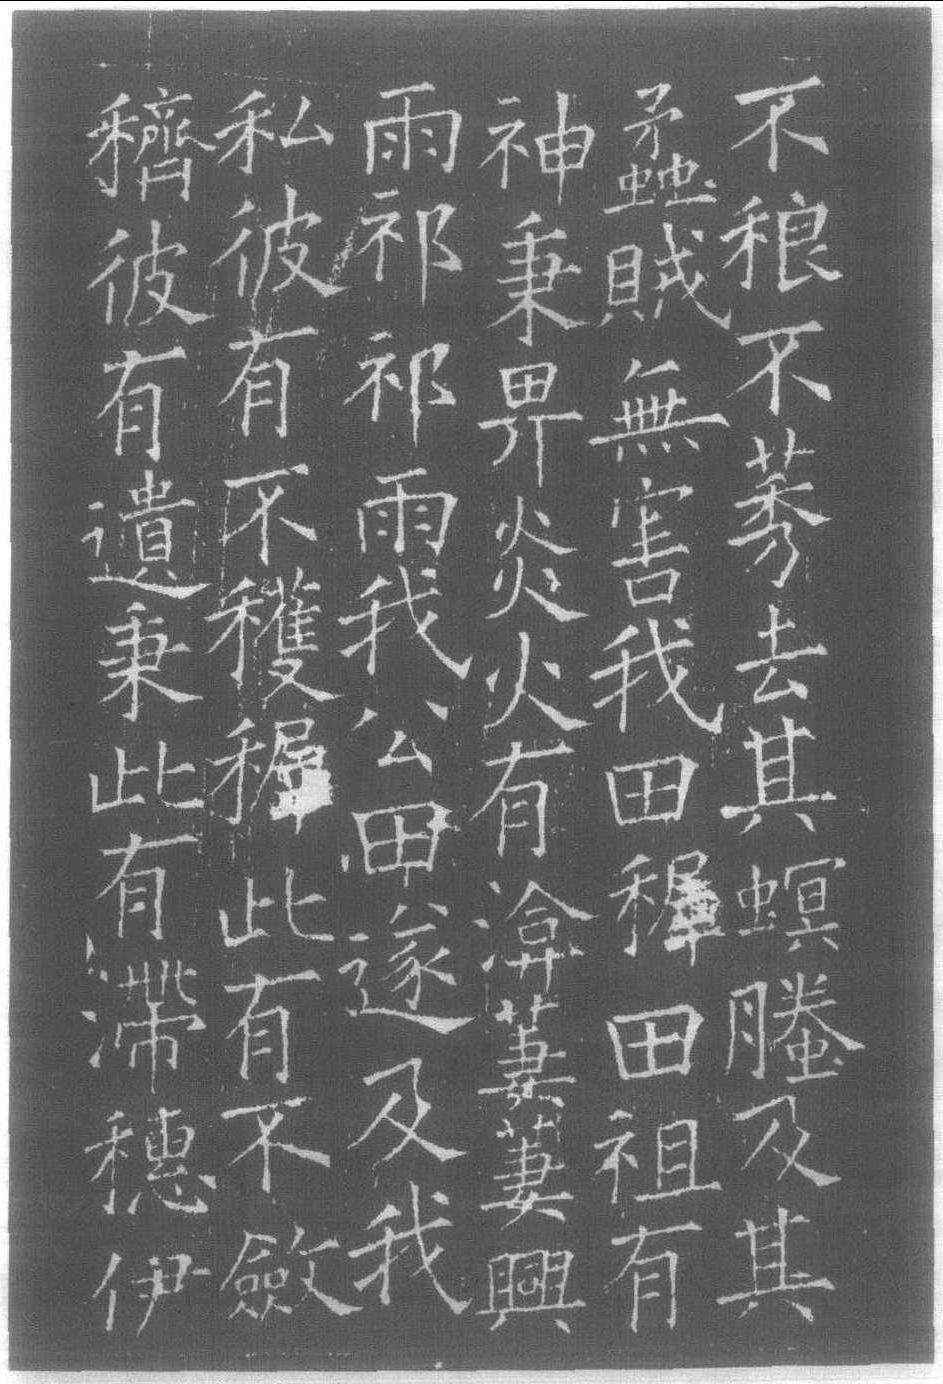 不稂不莠去其螟螣及其
蟊賊無害我田稺田祖有
神秉畀炎火有渰萋萋興
雨祁祁雨我公田遂及我
私彼有不穫稺此有不斂
穧彼有遺秉此有滯穗伊